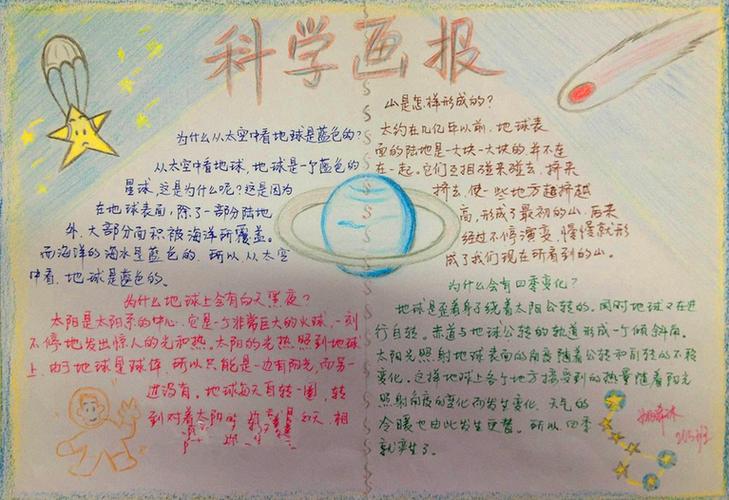 科学画报
为什么从太空中看地球是蓝色的?
从太空中看地球,地球是一个蓝色的
星球,这是为什么呢?这是因为
在地球表面,除了一部分陆地
外,大部分面积被海洋所覆盖。
而海洋的海水是蓝色的,所以从太空
中看,地球是蓝色的。
为什么地球上会有白天黑夜?
太阳是太阳系的中心,它是一个非常巨大的火球,一刻
不停地发出惊人的光和热。太阳的光热照到地球
上,由于地球是球体,所以只能是一边有阳光,而另一
边没有。地球每天自转一圈,转
到对着太阳的 白天,相
山是怎样形成的?
太约在几亿年以前,地球表
面的陆地是一大块一大块的并不连
在一起。它们互相碰来碰去,挤来
挤去,使一些地方越挤越
高,形成了最初的山,后来
经过不停演变,慢慢就形
成了我们现在所看到的山。
为什么会有四季变化?
地球是歪着身子绕着太阳公转的,同时地球又在进
行自转。赤道与地球公转的轨道形成一个倾斜角。
太阳光照射地球表面的角度随着公转和自转的不段
变化。这样地球上各个地方接受到的热量随着阳光
照射角度的变化而发生变化,天气的
冷暖也由此发生更替。所以,四季
就产生了。
205班